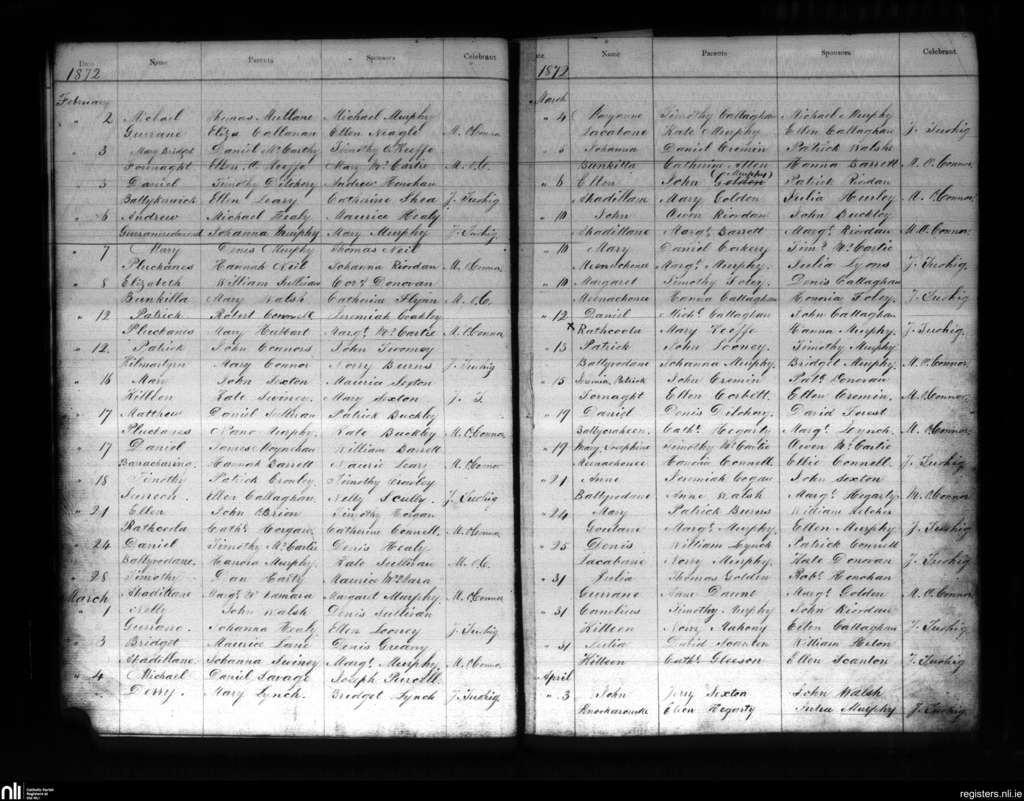 Date Name Parents Sponsors Celebrant
1872
February
" 2 Michael Thomas Mullane Michael Murphy
Gurrane Eliza Callanan Ellen Neagle M. O'Connor
" 3 Mary Bridget Daniel McCarthy Timothy O'Keeffe
Fornaght Ellen O'Keeffe Mary McCartie M. O'C.
" 3 Daniel Timothy Dilohery Andrew Honohan
Ellen Leary Catherine Shea J. Twohig
" 6 Andrew Michael Healy Maurice Healy
Johanna Murphy Mary Murphy J. Twohig
" 7 Mary Denis Murphy Thomas Neil
Pluckanes Hannah Neil Johanna Riordan M. O'Connor
" 8 Elizabeth William Sullivan Cors. Donovan
Bunkilla Mary Walsh Catherine Flynn M. O'C.
" 12 Patrick Robert Connell Jeremiah Coakley
Pluckanes Mary Margt. McCartie M. O'Connor
" 12. Patrick John Connors John Twomey
Kilmartyn Mary Connor Norry Burns J. Twohig
" 16 Mary John Sexton Maurice Sexton
Killeen Kate Sweeney. Mary Sexton J. T.
" 17 Matthew Daniel Sullivan Patrick Buckley
Pluckanes Nano Murphy. Kate Buckley M. O'Connor
" 17 Daniel James Moynihan William Barrett
Hannah Barrett Maurice Leary M. O'Connor
" 18 Timothy Patrick Crowley Timothy Crowley
Ellen Callaghan Nelly Scully. J. Twohig
" 21 Ellen John O'Brien Timothy Horgan
Rathcoola Cathe. Horgan Catherine Connell. M. O'Connor
" 24 Daniel Timothy McCartie Denis Healy
Ballyrodane. Hanora Murphy. Kate Sullivan M. O'C.
" 28 Timothy Dan Harty Maurice McNamara
Ahadillane Margt. McNamara Margaret Murphy M. O'Connor
March
" 1 Nelly John Walsh Denis Sullivan
Gurrane. Johanna Healy Ellen Looney J. Twohig
" 3 Bridget Maurice Lane Denis
Ahadillane Johanna Sweeney Margt. Murphy M. O'Connor
" 4 Michael Daniel Savage Joseph Purcell
Derry. Mary Lynch. Bridget Lynch J. Twohig
Name Parents Sponsors Celebrant
1872
March
" 4 Timothy Callaghan Michael Murphy
Lacabane Kate Murphy Ellen Callaghan J. Twohig
" 5 Johanna Daniel Cremin Patrick Walsh
Bunkilla Catherine Allen Hanna Barrett M. O'Connor
(Murphy)
" 6 Ellen John Golden Patrick Riordan
Ahadillane Mary Golden Julia Hurley M. O'Connor
" 10 John Owen Riordan John Buckley
Ahadillane Margt. Barrett Margt. Riordan M. O'Connor
" 10 Mary Daniel Corkery Timy. McCartie
Meenachonee Margt. Murphy. Julia Lyons J. Twohig
" 10 Margaret Timothy Foley. Denis Callaghan
Meenachonee Hanna Callaghan Honoria Foley. J. Twohig
" 12 Daniel Michl. Callaghan John Callaghan
x Rathcoola Mary Keeffe Hanna Murphy. J. Twohig.
" 13 Patrick John Looney. Timothy Murphy.
Ballyrodane Johanna Murphy. Bridget Murphy M. O'Connor
" 15 Jeremia. Patrick John Cremin Patk. Donovan
Fornaght Ellen Corbett Ellen Cremin. M. O'Connor
" 19 Daniel Denis Dilohery. David Forest
Ballycraheen. Cathe. Hegarty Margt. Lynch. M. O'Connor
" 19 Mary Josephine Timothy McCartie Owen McCartie
Meenachonee Honoria Connell. Ellie Connell. J. Twohig.
" 21 Anne Jeremiah Cogan John Sexton
Ballyrodane Anne Walsh Margt. Hegarty M. O'Connor
" 24 Mary Patrick Burns William Kelcher
Goulane Margt. Murphy. Ellen Murphy J. Twohig
" 25 Denis William Lynch Patrick Connell
Lacabane Norry Murphy. Kate Donovan J. Twohig
" 31 Julia Thomas Golden Robt. Honohan
Gurrane Jane Daunt Margt. Golden M. O'Connor
" 31 Cornelius Timothy Murphy John Riordan
Killeen Nory Mahony Ellen Callaghan J. Twohig
" 31 Julia David Scanlon William
Killeen Cathe. Gleeson Ellen Scanlon J. Twohig
April
" 3 John Jerry Sexton John Walsh
Ellen Hegarty Julia Murphy J. Twohig
nli Catholic Parish Registers at the NLI
registers.nli.ie